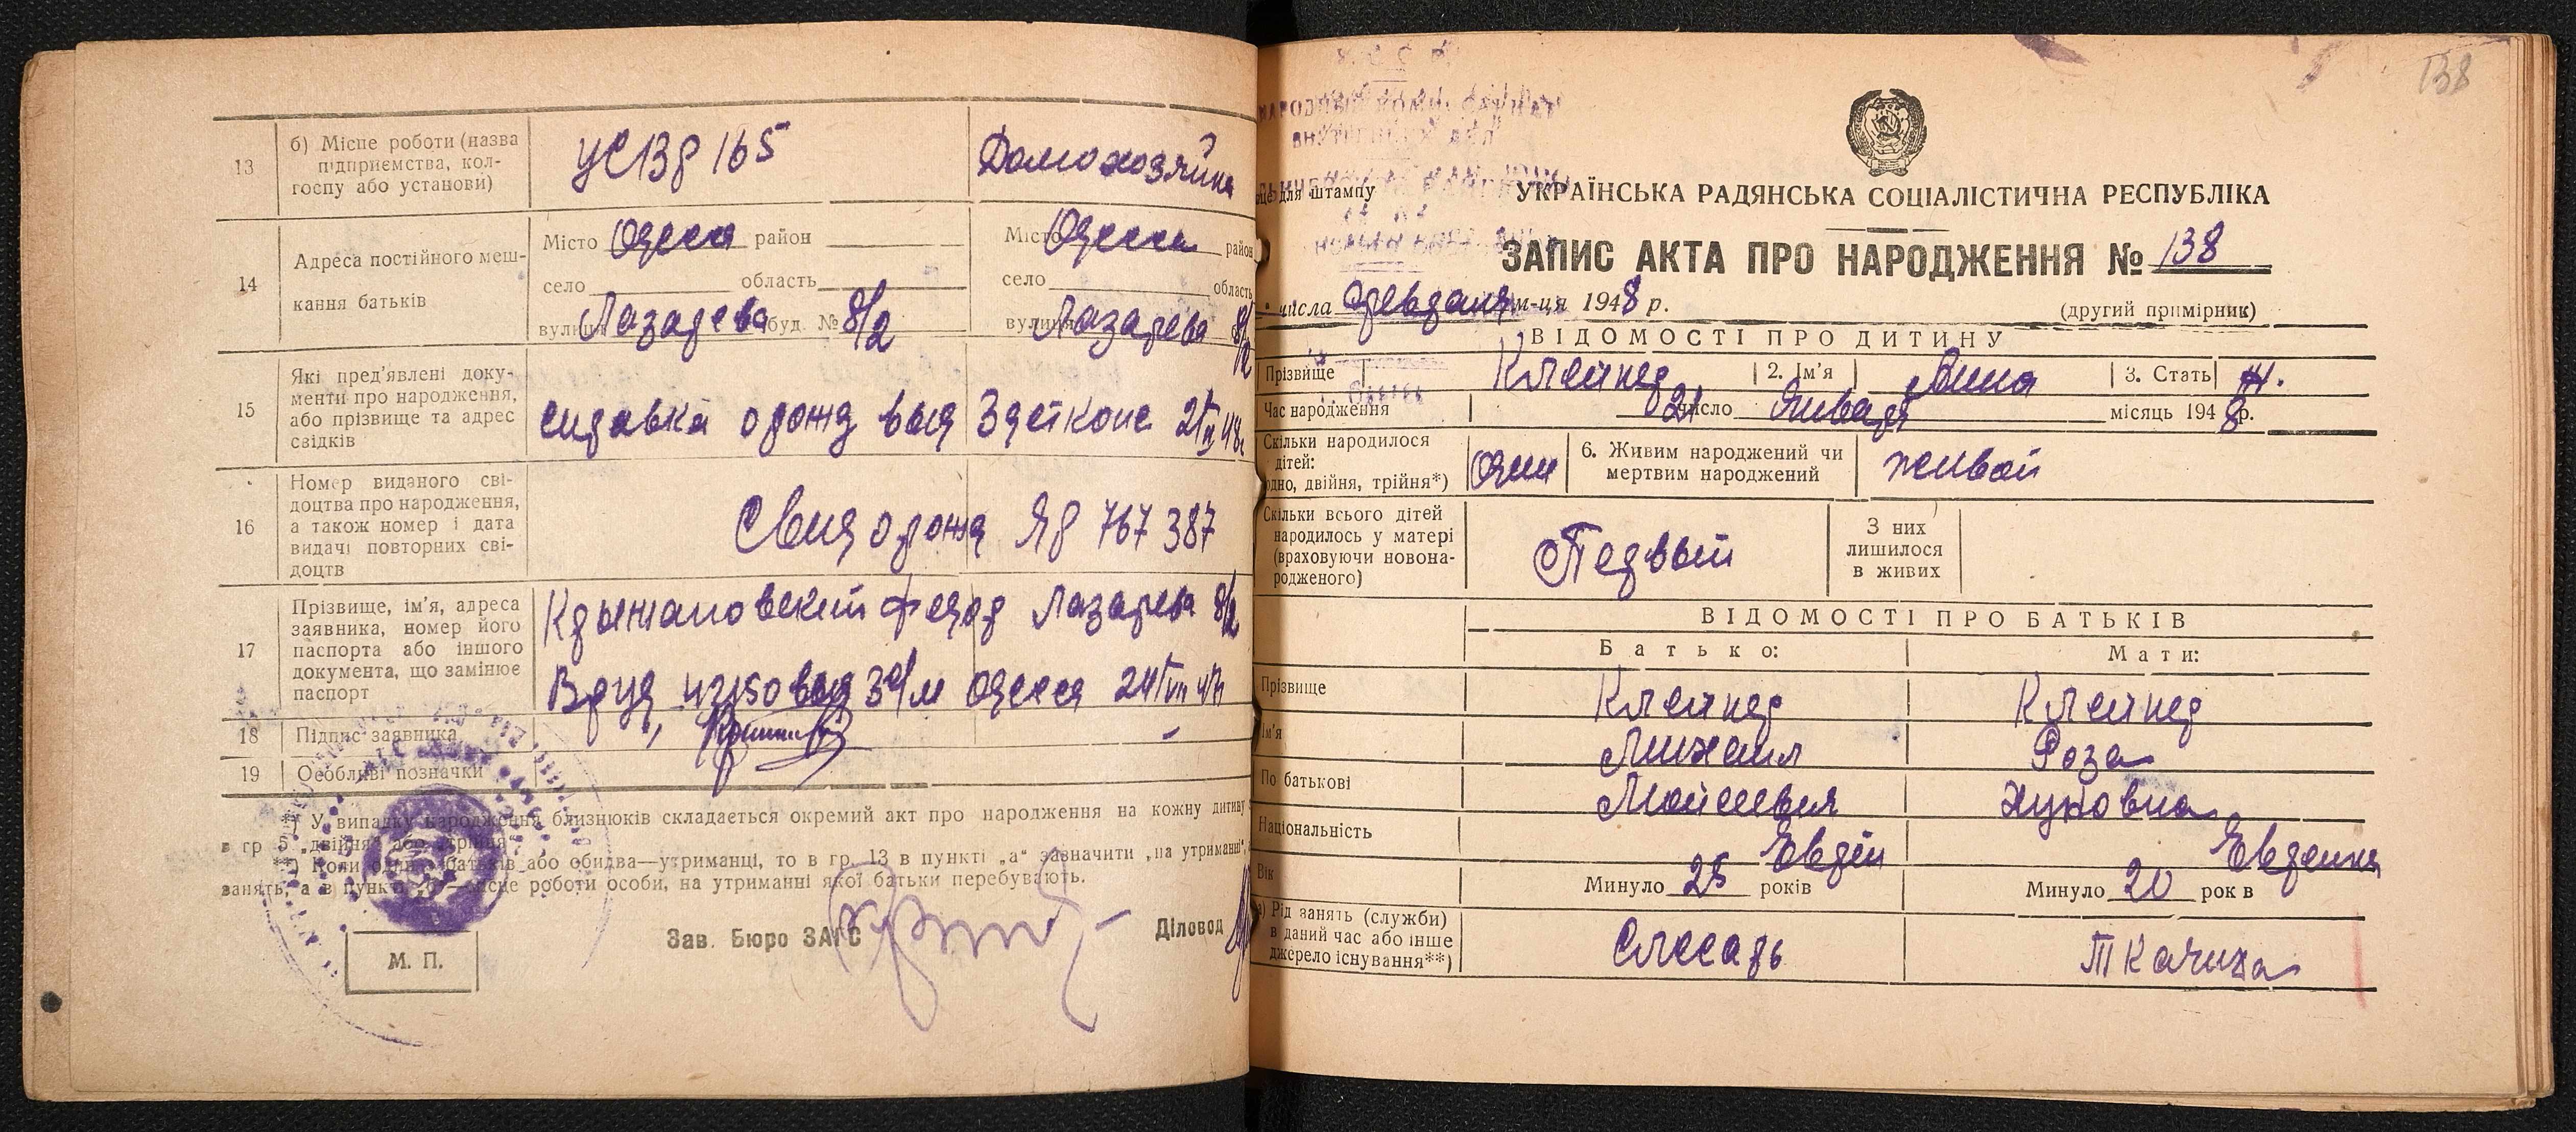 13
б) Місце роботи (назва
підприємства, кол-
госпу або установи)
УСВР 165
Домохозяйка
14
Адреса постійного меш-
кання батьків
Місто Одесса район
село область
вулиця Лазарева буд. № 8/2
Місто Одесса район
село область
вулиця Лазарева 8/2
15
Які пред'явлені доку-
менти про народження,
або прізвище та адрес
свідків
справка о рожд выд 3
16
Номер виданого сві-
доцтва про народження,
а також номер і дата
видачі повторних сві-
доцтв
Свид о рожд ЯР 767387
17
Прізвище, ім'я, адреса
заявника, номер його
паспорта або іншого
документа, що замінює
паспорт
Крыжановский Федор Лазарева 8/2
выд 3 о/м Одесса 24/VII 47
18
Підпис заявника
19
Особливі позначки
*) У випадку народження близнюків складається окремий акт про народження на кожну дитину
в гр 5 „двійня" або „трійня"
**) Коли один з батьків або обидва—утриманці, то в гр. 13 в пункті „а" зазначити „на утриманні",
занять, а в пункті „б"—місце роботи особи, на утриманні якої батьки перебувають.
Зав. Бюро ЗАГС
Діловод
М. П.
138
для штампу
УКРАЇНСЬКА РАДЯНСЬКА СОЦІАЛІСТИЧНА РЕСПУБЛІКА
ЗАПИС АКТА ПРО НАРОДЖЕННЯ № 138
числа Февраля м-ця 1948 р.
(другий примірник)
ВІДОМОСТІ ПРО ДИТИНУ
Прізвище Клейнер 2. Ім'я 3. Стать ж.
Час народження 21 число Января місяць 1948 р.
Скільки народилося
дітей:
одно, двійня, трійня*)
Один
6. Живим народжений чи
мертвим народжений
живой
Скільки всього дітей
народилось у матері
(враховуючи новона-
родженого)
Первый
З них
лишилося
в живих
ВІДОМОСТІ ПРО БАТЬКІВ
Батько: Мати:
Прізвище Клейнер Клейнер
Ім'я Михаил Роза
По батькові Мойсеевич Нуковна
Національність Еврей Еврейка
Вік Минуло 25 років Минуло 20 рок в
а) Рід занять (служби)
в даний час або інше
джерело існування**)
Слесарь
Ткачиха